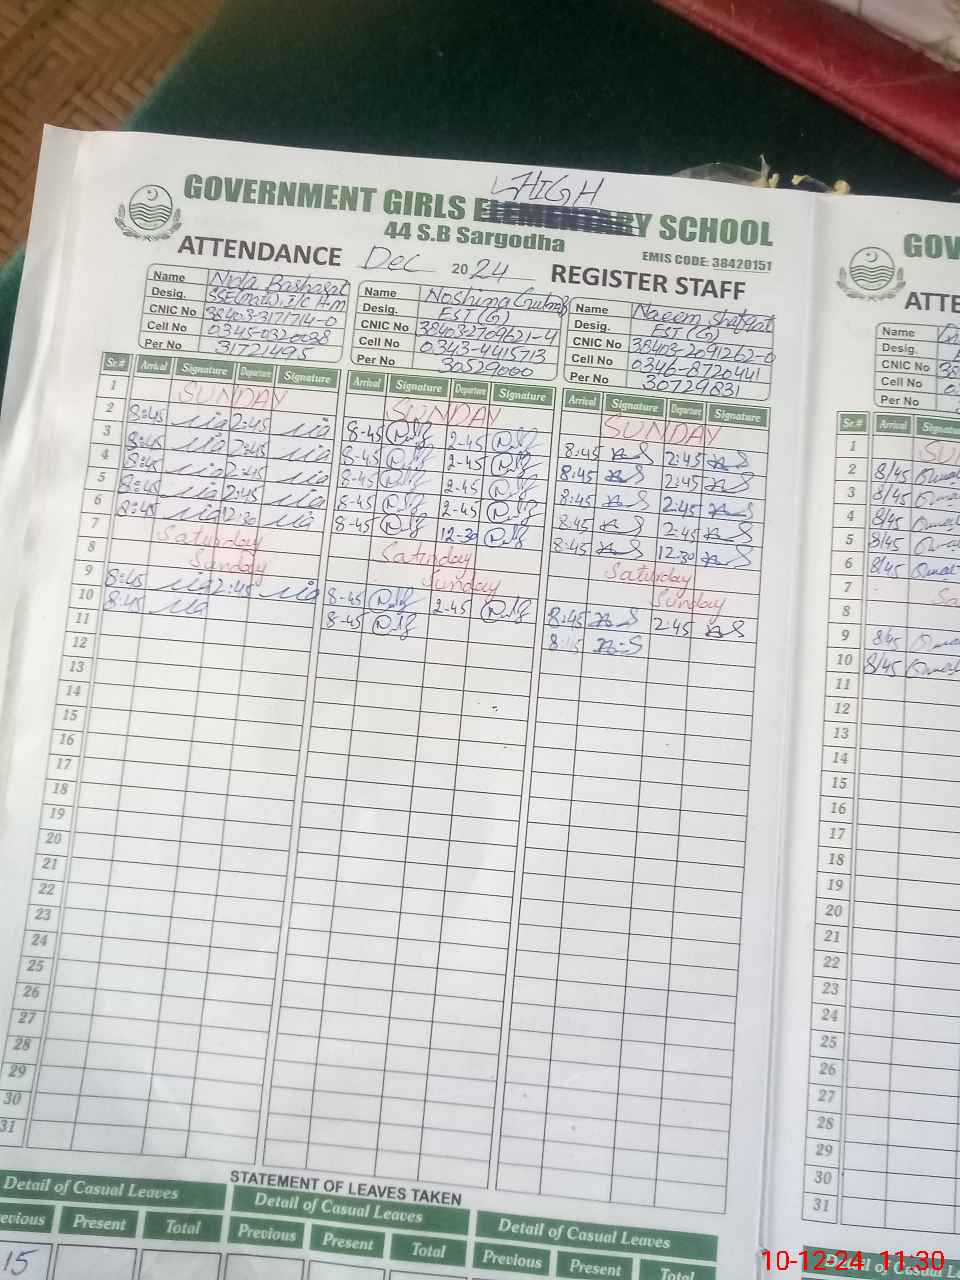 HIGH
GOVERNMENT GIRLS ELEMENTARY SCHOOL
44 S.B Sargodha
EMIS CODE: 38420151
ATTENDANCE Dec 2024 REGISTER STAFF
Name Nida Basharat
Desig. SSE(math), I/C H.m
CNIC No 38403-3171714-0
Cell No 0345-0320038
Per No 31721495
Name Noshina
Desig. EST (G)
CNIC No 38403-2709621-4
Cell No 0343-4415713
Per No 30529000
Name Naeem Shafqat
Desig. EST (G)
CNIC No 38403-2091262-0
Cell No 0346-8720441
Per No 30729831
Sr.# Arrival Signature Departure Signature Arrival Signature Departure Signature Arrival Signature Departure Signature
1 SUNDAY SUNDAY SUNDAY
2 8:45 2:45 8-45 2-45 8:45 2:45
3 8:45 2:45 8-45 2-45 8:45 2:45
4 8:45 2:45 8-45 2-45 8:45 2:45
5 8:45 2:45 8-45 2-45 8:45 2:45
6 8:45 12:30 8-45 12-30 8:45 12:30
7 Saturday Saturday Saturday
8 Sunday Sunday Sunday
9 8:45 2:45 8-45 2-45 8:45 2:45
10 8:45 8-45 8:45
11
12
13
14
15
16
17
18
19
20
21
22
23
24
25
26
27
28
29
30
31
STATEMENT OF LEAVES TAKEN
Detail of Casual Leaves Detail of Casual Leaves Detail of Casual Leaves
Present Total Previous Present Total Previous Present Total
15
GOV
ATTE
Name
Desig.
CNIC No 38
Cell No
Per No
Sr.# Arrival
1
2 8/45
3 8/45
4 8/45
5 8/45
6 8/45
7
8
9 8/45
10 8/45
11
12
13
14
15
16
17
18
19
20
21
22
23
24
25
26
27
28
29
30
31
Detail of Casual
10-12-24 11:30